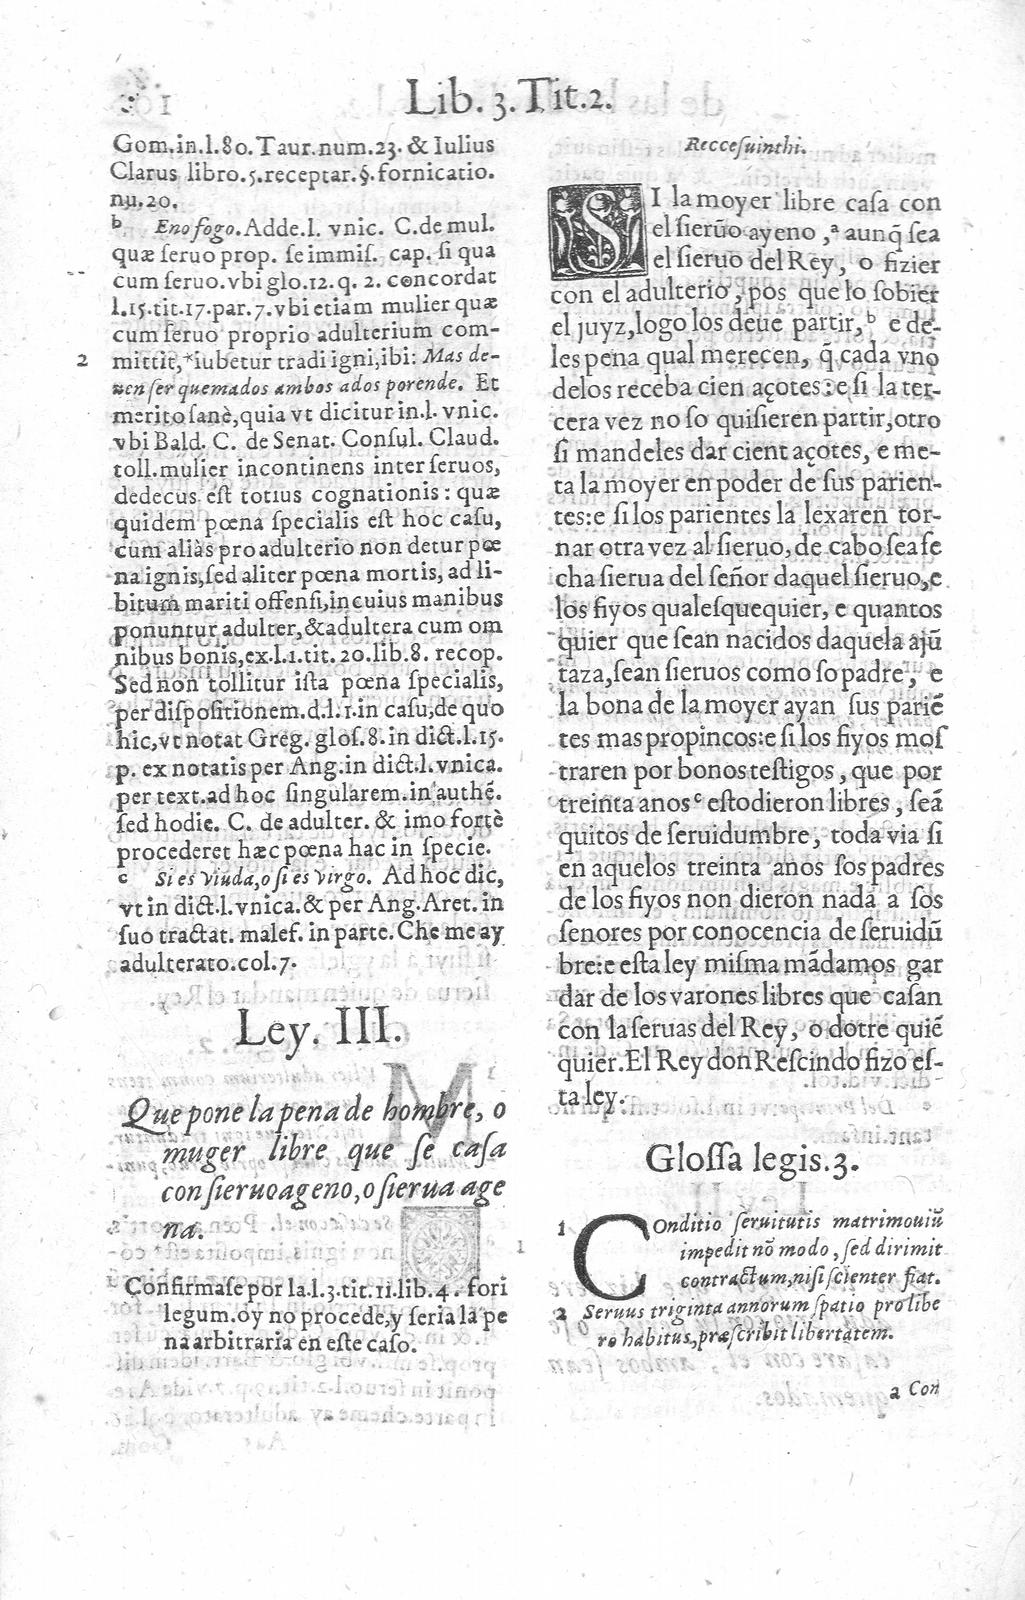 Lib. 3. Tit. 2.
Gom. in. l. 80. Taur. num. 23. & Iulius
Clarus libro. 5. receptar. §. fornicatio.
nu. 20.
b Eno fogo. Adde. l. vnic. C. de mul.
quæ seruo prop. se immis. cap. si qua
cum seruo. vbi glo. 12. q. 2. concordat
l. 15. tit. 17. par. 7. vbi etiam mulier quæ
cum seruo proprio adulterium com-
2 mittit,*iubetur tradi igni, ibi: Mas de-
uen ser quemados ambos ados porende. Et
merito sanè, quia vt dicitur in. l. vnic.
vbi Bald. C. de Senat. Consul. Claud.
toll. mulier incontinens inter seruos,
dedecus est totius cognationis: quæ
quidem pœna specialis est hoc casu,
cum aliàs pro adulterio non detur pœ
na ignis, sed aliter pœna mortis, ad li-
bitum mariti offensi, in cuius manibus
ponuntur adulter, & adultera cum om
nibus bonis, ex. l. 1. tit. 20. lib. 8. recop.
Sed non tollitur ista pœna specialis,
per dispositionem. d. l. 1. in casu, de quo
hic, vt notat Greg. glos. 8. in dict. l. 15.
p. ex notatis per Ang. in dict. l. vnica.
per text. ad hoc singularem. in authē.
sed hodie. C. de adulter. & imo fortè
procederet hæc pœna hac in specie.
c Si es viuda, o si es virgo. Ad hoc dic,
vt in dict. l. vnica. & per Ang. Aret. in
suo tractat. malef. in parte. Che me ay
adulterato. col. 7.
Ley. III.
Que pone la pena de hombre, o
muger libre que se casa
con sieruo ageno, o sierua age
na.
Confirmase por la. l. 3. tit. 11. lib. 4. fori
legum. oy no procede, y seria la pe
na arbitraria en este caso.
Reccesuinthi.
SI la moyer libre casa con
el sieruo ayeno,ª aunq̃ sea
el sieruo del Rey, o fizier
con el adulterio, pos que lo sobier
el juyz, logo los deue partir,ᵇ e de-
les pena qual merecen, q̃ cada vno
delos receba cien açotes: e si la ter-
cera vez no so quisieren partir, otro
si mandeles dar cient açotes, e me-
ta la moyer en poder de sus parien-
tes: e si los parientes la lexaren tor-
nar otra vez al sieruo, de cabo sea fe
cha sierua del señor daquel sieruo, e
los fiyos qualesquequier, e quantos
quier que sean nacidos daquela ajũ
taza, sean sieruos como so padre, e
la bona de la moyer ayan sus pariē
tes mas propincos: e si los fiyos mos
traren por bonos testigos, que por
treinta anosᶜ estodieron libres, seã
quitos de seruidumbre, toda via si
en aquelos treinta anos sos padres
de los fiyos non dieron nada a sos
senores por conocencia de seruidũ
bre: e esta ley misma mãdamos gar
dar de los varones libres que casan
con la seruas del Rey, o dotre quiē
quier. El Rey don Rescindo fizo es-
ta ley.
Glossa legis. 3.
1 Conditio seruitutis matrimouiũ
impedit nõ modo, sed dirimit
contractum, nisi scienter fiat.
2 Seruus triginta annorum spatio pro libe
ro habitus, præscribit libertatem.
a Con